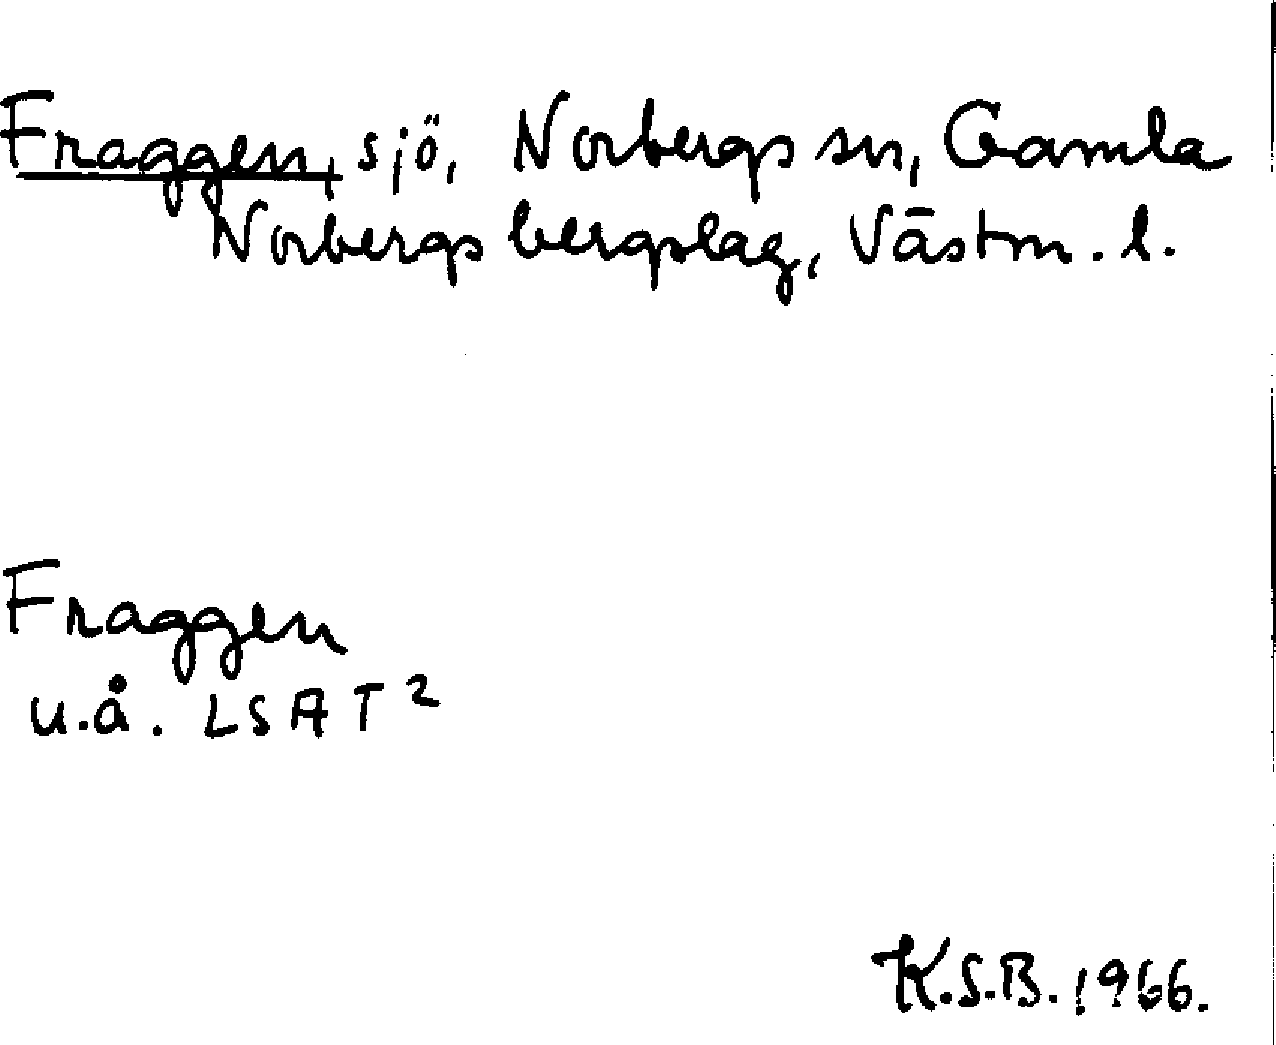 Fraggen, sjö, Norbergs sn, Gamla
Norbergs bergslag, Västm. l.
Fraggen
u.å. LSA T²
K.S.B. 1966.